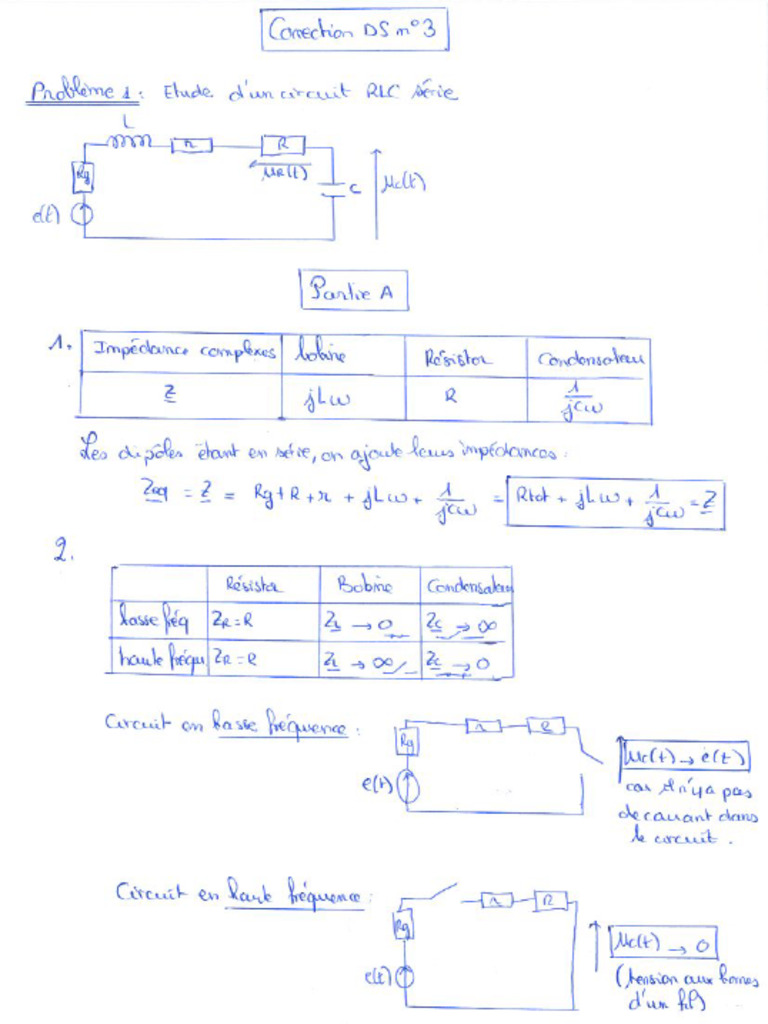 Correction DS n°3
Problème 1 : Etude d'un circuit RLC série
L
r
R
Rg
uR(t)
C
uc(t)
e(t)
Partie A
1.
Impédance complexes bobine Résistor Condensateur
Z jLω R 1/jCω
Les dipôles étant en série, on ajoute leurs impédances :
Zeq = Z = Rg + R + r + jLω + 1/jCω = Rtot + jLω + 1/jCω = Z
2.
Résistor Bobine Condensateur
basse fréq ZR = R ZL → 0 Zc → ∞
haute fréqu ZR = R ZL → ∞ Zc → 0
Circuit en basse fréquence :
r
R
Rg
e(t)
uc(t) → e(t)
car il n'y a pas
de courant dans
le circuit.
Circuit en haute fréquence :
r
R
Rg
e(t)
uc(t) → 0
(tension aux bornes
d'un fil)